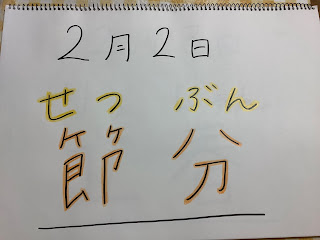 2月2日
せつ ぶん
節 分